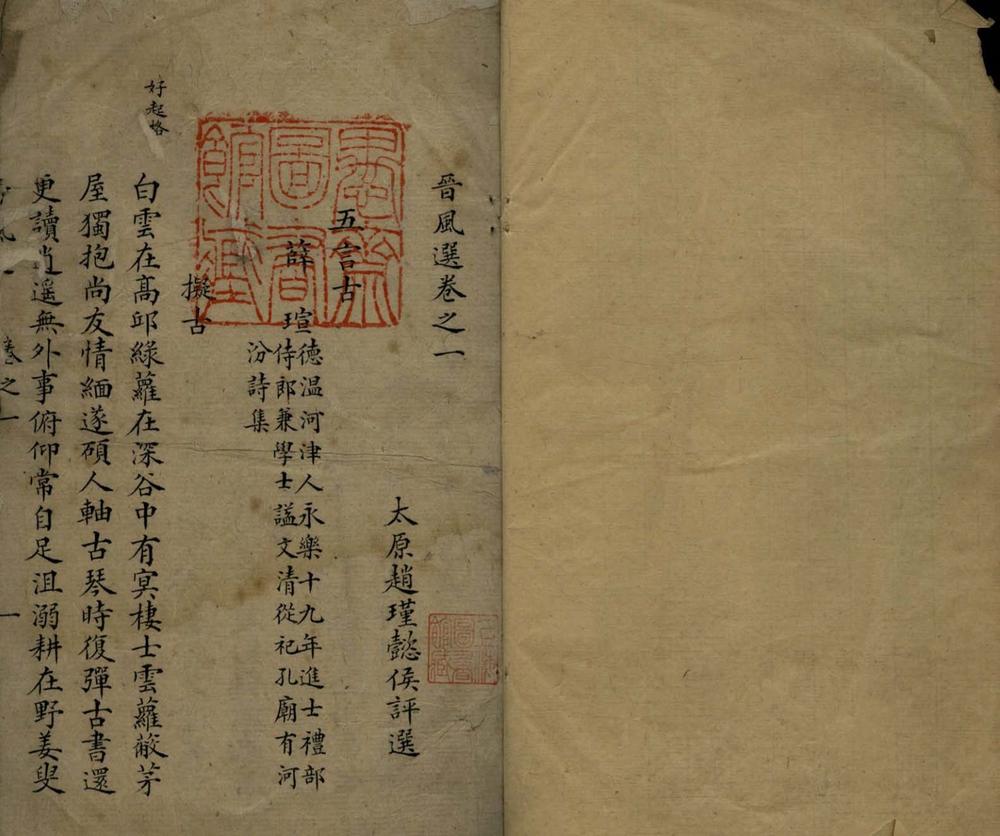 晉風選卷之一
太原趙瑾懿侯評選
五言古
薛瑄
德温河津人永樂十九年進士禮部
侍郎兼學士謚文清從祀孔廟有河
汾詩集
擬古
好起格
白雲在髙邱綠蘿在深谷中有㝠棲士雲蘿蔽茅
屋獨抱尚友情緬遂碩人軸古琴時復彈古書還
更讀逍遥無外事俯仰常自足沮溺耕在野姜叟
卷之一
一
圖書